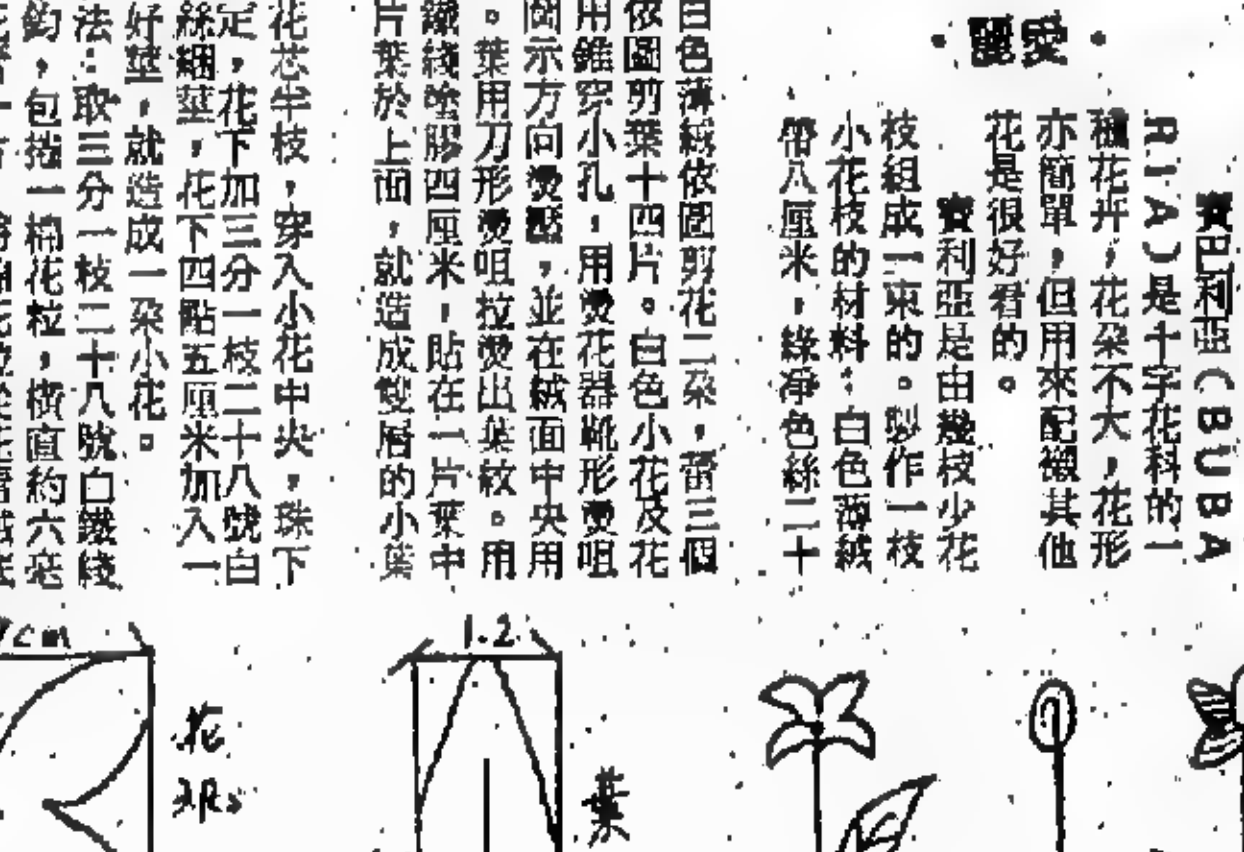 愛麗
寶巴利亞(BUBA
RIA)是十字花科的一
種花卉,花朶不大,花形
亦簡單,但用來配襯其他
花是很好看的。
寶利亞是由幾枝少花
枝組成一束的。製作一枝
小花枝的材料:白色薄絨
帶八厘米,綠淨色絲二十
白色薄絨依圖剪花二朶,蕾三個
依圖剪葉十四片。白色小花及花
用錐穿小孔,用燙花器靴形燙咀
圖示方向燙壓,並在絨面中央用
。葉用刀形燙咀拉燙出葉紋。用
鐵綫塗膠四厘米,貼在一片葉中
片葉於上面,就造成雙層的小葉
花芯半枝,穿入小花中央,珠下
足,花下加三分一枝二十八號白
絲綑莖,花下四點五厘米加入一
好莖,就造成一朶小花。
法:取三分一枝二十八號白鐵綫
鈎,包捲一棉花粒,橫直約六毫
cm
1.2
花
葉